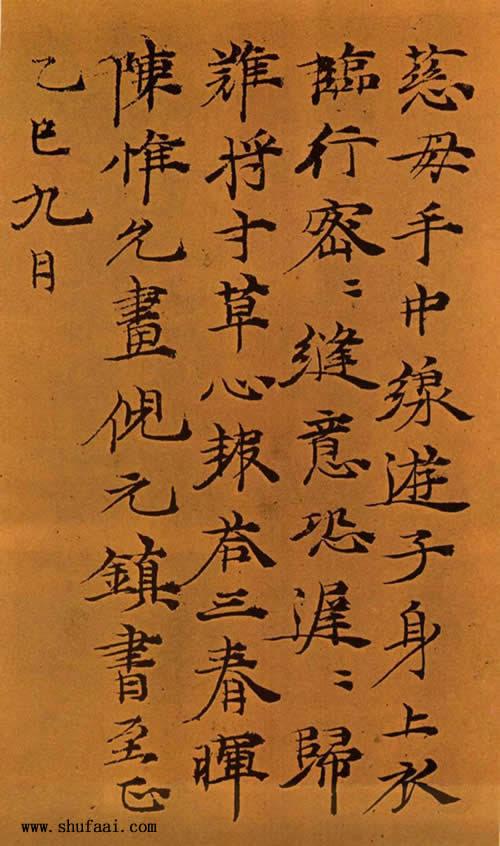 慈母手中線遊子身上衣
臨行密〻縫意恐遲〻歸
難将寸草心報荅三春暉
陳惟允畫倪元鎮書至正
乙巳九月
www.shufaai.com